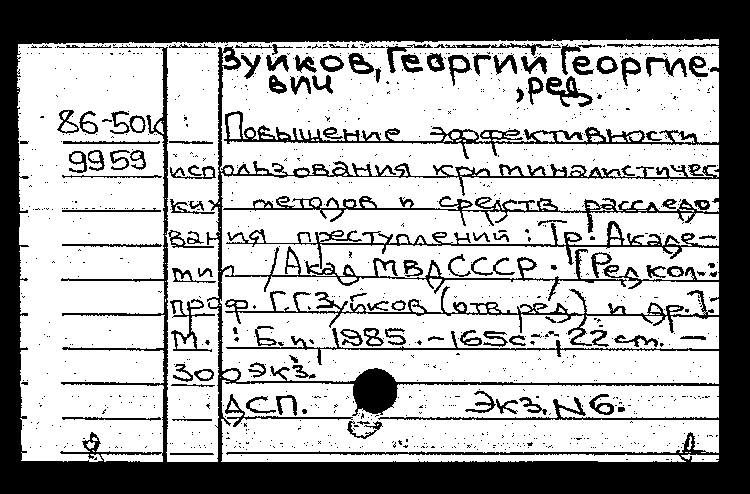 Зуйков, Георгий Георгие-
вич, ред.
86-501
Повышение эффективности
9959
использования криминалистичес-
ких методов и средств расследо-
вания преступлений: Тр. Акаде-
мии / Акад МВД СССР; [Редкол.:
проф. Г.Г.Зуйков (отв.ред) и др.].-
М.: Б.и., 1985.-165с.; 22см. -
300 экз.
ДСП. Экз.N6.